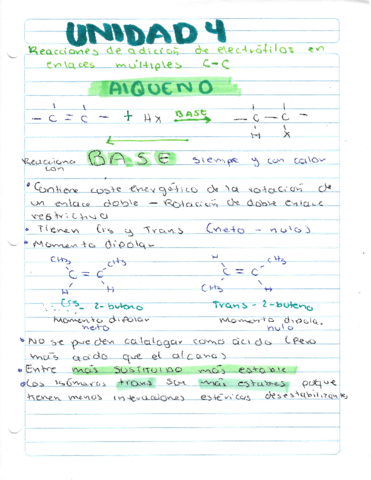 UNIDAD 4
Reacciones de adición de electrófilos en
enlaces múltiples C-C
AlQUENO
- C = C - + Hx BASE - C - C -
H X
Reacciona con BASE siempe y con calor
• Contiene coste energético de la rotación de
un enlace doble - Rotación de doble enlace
restrictiva
• Tienen Cis y Trans (neto - nulo)
• Momento dipolar
CH3 CH3 H CH3
C = C C = C
H H CH3 H
Cis - 2-buteno Trans - 2-buteno
Momento dipolar Momento dipola.
neto nulo
• No se pueden catalogar como ácido (pero
más acido que el alcano)
• Entre más SUSTITUIDO más estable
• Los isómeros trans son más estables poque
tienen menos interacciones estéricas desestabilizantes